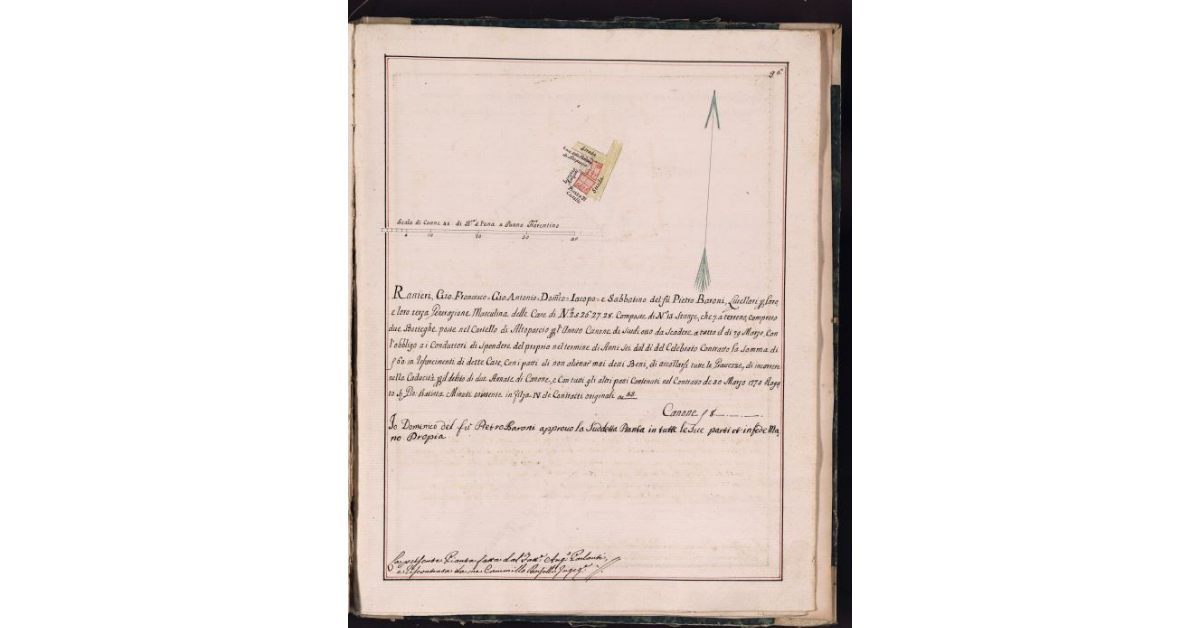 36
Strada
Strada
Scala di Canne 40 di Bra 4 l'una a Panno Fiorentino
5 10 20 30 40
Ranieri, Gio. Francesco = Gio. Antonio = Domco = Iacopo = e Sabbatino del fù Pietro Baroni, Livellari p loro
e loro terza Generazione Masculina delle Case di N.° 25 26 27 28. Composte di N° 13 Stanze, che 7. a terreno, compreso
due Botteghe poste nel Castello di Altopascio p l'annuo Canone di Scudi otto da Scadere a tutto il dì 29 Marzo, Con
l'obbligo a i Conduttori di Spendere del proprio nel termine di Anni Sei dal dì del Celebrato Contratto la Somma di
60. in Resarcimenti di dette Case, Con i patti di non alienar mai detti Beni, di accollarsi tutte le Gravezze, di incorrere
nella Caducità p il debito di due Annate di Canone, e Con tutti gli altri patti Contenuti nel Contratto de 20 Marzo 1770 Roga
to Batista Minuti esistente in filza N de Contratti originali a
Canone 8
Io Domenico del fù Pietro Baroni approvo la Suddetta Pianta in tutte le Sue parti et in fede Ma
no Propia
La presente Pianta fatta dal Ango Parlanti,
e Riscontrata da me Cammillo Ingegre